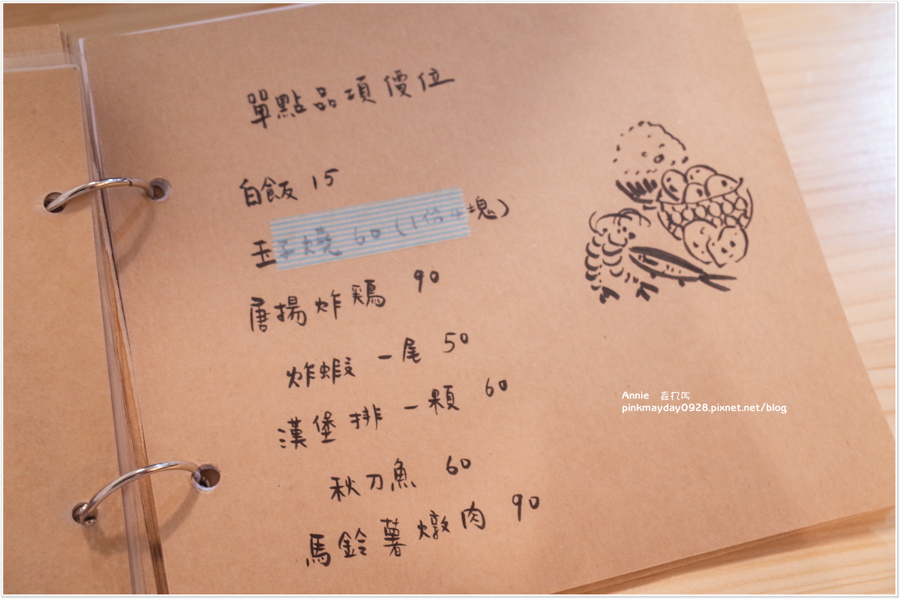 單點品項價位
白飯 15
玉子燒 60 (1份4塊)
唐揚炸鷄 90
炸蝦 一尾 50
漢堡排 一顆 60
秋刀魚 60
馬鈴薯燉肉 90
Annie
pinkmayday0928.pixnet.net/blog